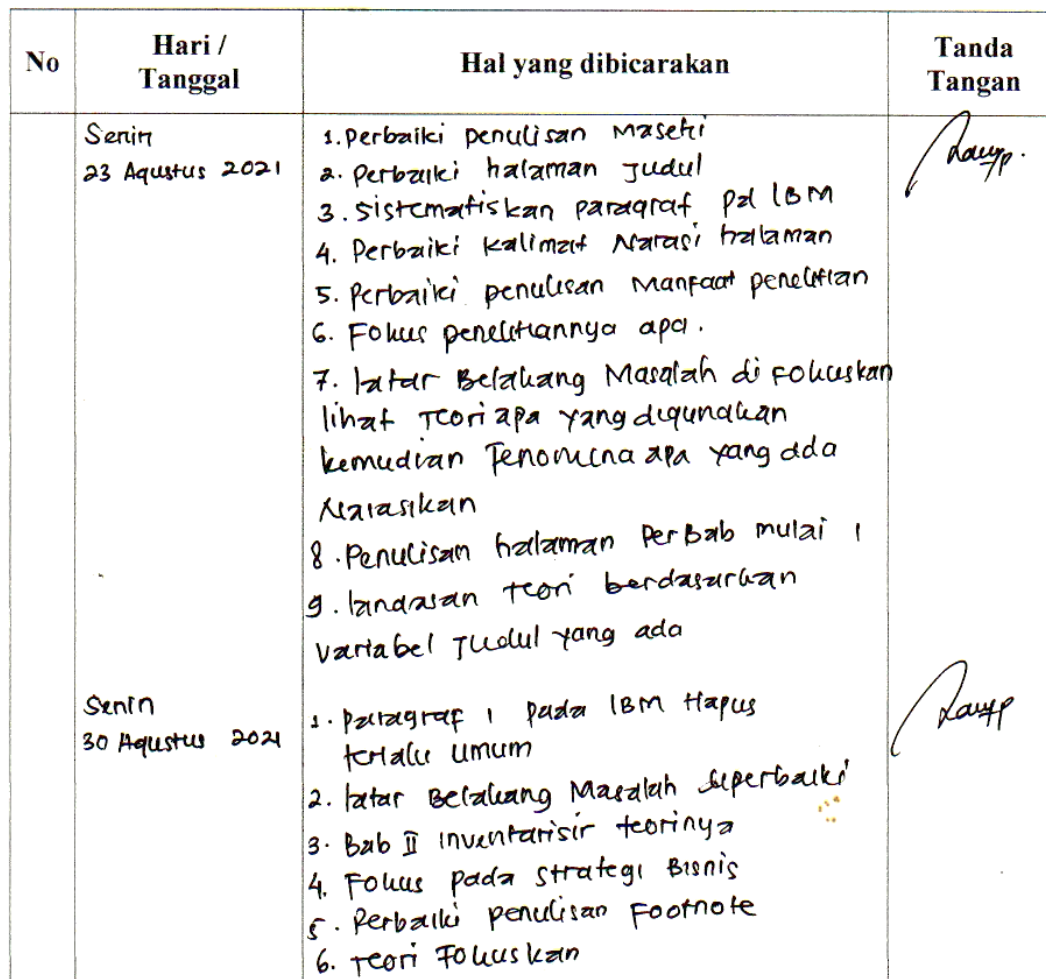 No
Hari /
Tanggal
Hal yang dibicarakan
Tanda
Tangan
Senin
23 Agustus 2021
1. Perbaiki penulisan Masehi
2. Perbaiki halaman Judul
3. Sistematiskan paragraf pd lBM
4. Perbaiki kalimat Narasi halaman
5. Perbaiki penulisan Manfaat penelitian
6. Fokus penelitiannya apa.
7. latar Belakang Masalah di Fokuskan
lihat Teori apa yang digunakan
kemudian Fenomena apa yang ada
Narasikan
8. Penulisan halaman Per Bab mulai 1
9. landasan teori berdasarkan
variabel Judul yang ada
Senin
30 Agustus 2021
1. paragraf 1 pada lBM Hapus
terlalu umum
2. latar Belakang Masalah diperbaiki
3. Bab II inventarisir teorinya
4. Fokus pada strategi Bisnis
5. Perbaiki penulisan Footnote
6. Teori Fokuskan